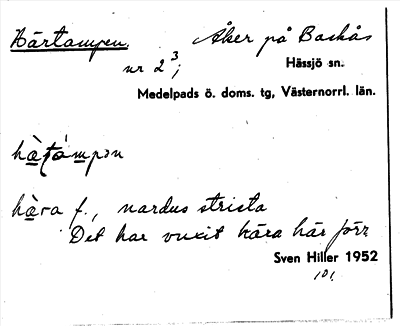 Härtampen. Åker på Baskås
nr 2³; Hässjö sn.
Medelpads ö. doms. tg, Västernorrl. län.
hä̀támpən
hä̀ra f., nardus strista
Det har vuxit hära här förr
Sven Hiller 1952
101.